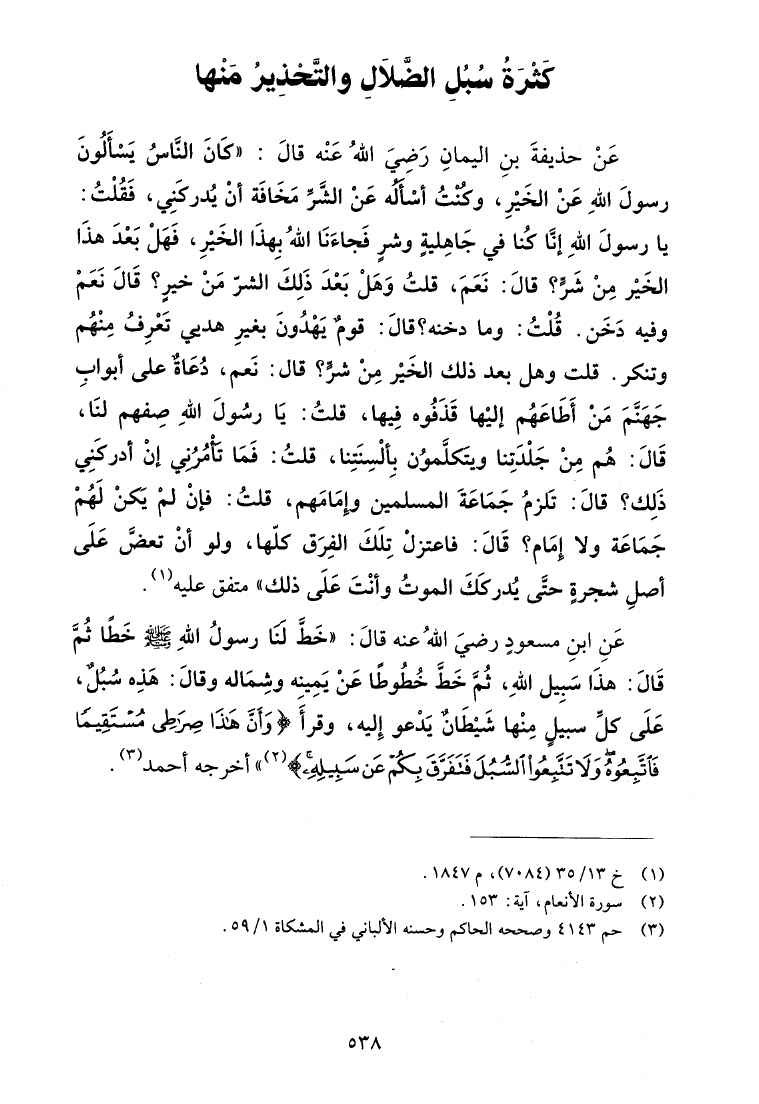 كَثْرَةُ سُبُلِ الضَّلاَلِ والتَّحْذِيرُ مَنْها
عَنْ حذيفةَ بنِ اليمانِ رَضِيَ اللهُ عَنْه قالَ : «كَانَ النَّاسُ يَسْأَلُونَ
رسولَ اللهِ عَنْ الخَيْرِ، وكُنْتُ أسْأَلُه عَنْ الشَّرِّ مَخَافَة أنْ يُدركَنِي، فَقُلْتُ:
يا رسولَ اللهِ إنَّا كُنا في جَاهليةٍ وشرٍ فَجاءَنَا اللهُ بِهذَا الخَيْرِ، فَهَلْ بَعْدَ هذَا
الخَيْر مِنْ شَرٍّ؟ قالَ: نَعَمَ، قلتُ وَهَلْ بَعْدَ ذَلِكَ الشرّ مَنْ خيرٍ؟ قَالَ نَعَمْ
وفيه دَخَن. قُلْتُ: وما دخنه؟قالَ: قومٌ يَهْدُونَ بغيرِ هديي تَعْرِفُ مِنْهُم
وتنكر. قلت وهل بعد ذلك الخَيْر مِنْ شرٍّ؟ قال: نَعم، دُعَاةٌ على أبوابِ
جَهَنَّمَ مَنْ أَطَاعَهُم إليْها قَذَفُوه فِيها، قلتُ: يَا رسُولَ اللهِ صِفهم لنَا،
قَالَ: هُم مِنْ جَلْدَتِنا ويتكلَّموُن بِألْسِنَتِنا، قلتُ: فَمَا تَأْمُرُنِي إنْ أدركَنِي
ذَلِك؟ قالَ: تَلزمُ جَمَاعَةَ المسلمين وإمَامَهم، قلتُ: فإنْ لمْ يَكنْ لَهُمْ
جَمَاعَة ولا إمَام؟ قَالَ: فاعتزلْ تِلَكَ الفِرَق كلّها، ولو أنْ تعضَّ عَلَى
أصلِ شجرةٍ حتَّى يُدركَكَ الموتُ وأنْتَ عَلَى ذلك» متفق عليه(١).
عَنِ ابنِ مسعودٍ رضيَ اللهُ عنه قالَ: «خَطَّ لَنَا رسولُ اللهِ ﷺ خَطًا ثُمَّ
قَالَ: هذَا سَبِيل اللهِ، ثُمَّ خَطَّ خُطُوطًا عَنْ يَمِينِه وشِمَاله وقالَ: هَذِه سُبُلٌ،
عَلَى كلِّ سبيلٍ مِنْها شَيْطَانٌ يَدْعو إليه، وقرأَ ﴿وَأَنَّ هَٰذَا صِرَٰطِى مُسْتَقِيمًا
فَٱتَّبِعُوهُ ۖ وَلَا تَتَّبِعُوا۟ ٱلسُّبُلَ فَتَفَرَّقَ بِكُمْ عَن سَبِيلِهِۦ ۚ﴾(٢)» أخرجه أحمد(٣).
(١) خ ١٣/ ٣٥ (٧٠٨٤)، م ١٨٤٧.
(٢) سورة الأنعام، آية: ١٥٣.
(٣) حم ٤١٤٣ وصححه الحاكم وحسنه الألباني في المشكاة ١/ ٥٩.
٥٣٨